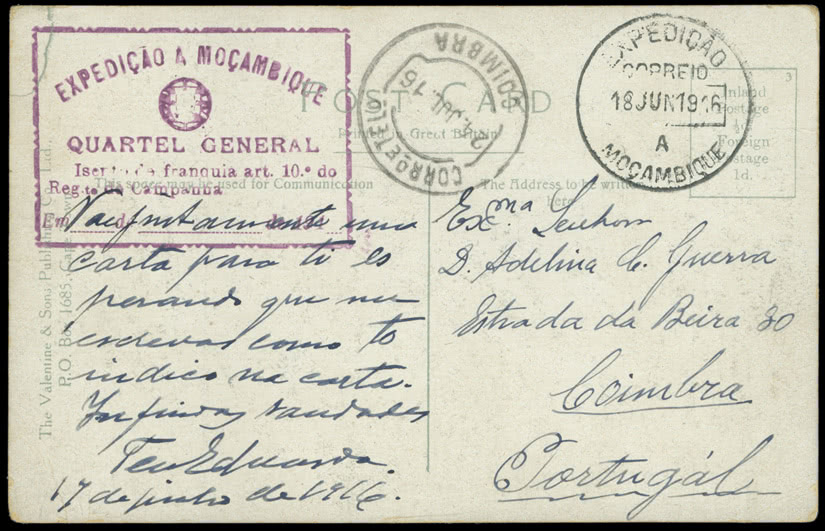 EXPEDIÇÃO A MOÇAMBIQUE
QUARTEL GENERAL
Isento de franquia art. 10.º do
Reg.to Campanha
Em d de 191
CORREIO TELEG
COIMBRA
JUL. 16
EXPEDIÇÃO
CORREIO
18 JUN 1916
A
MOÇAMBIQUE
3
Inland
Postage
½d.
Foreign
Postage
1d.
POST CARD
Printed in Great Britain
This space may be used for Communication
The Address to be written
here
The Valentine & Sons Publishing Co., Ltd.,
P.O. Box 1685, Cape Town
Vae juntamente uma
carta para ti es
perando que me
escrevas como to
indico na carta.
Infindas saudades
Teu Eduardo.
17 de junho de 1916.
Exma. Senhora
D. Adelina C. Guerra
Estrada da Beira 30
Coimbra
Portugál